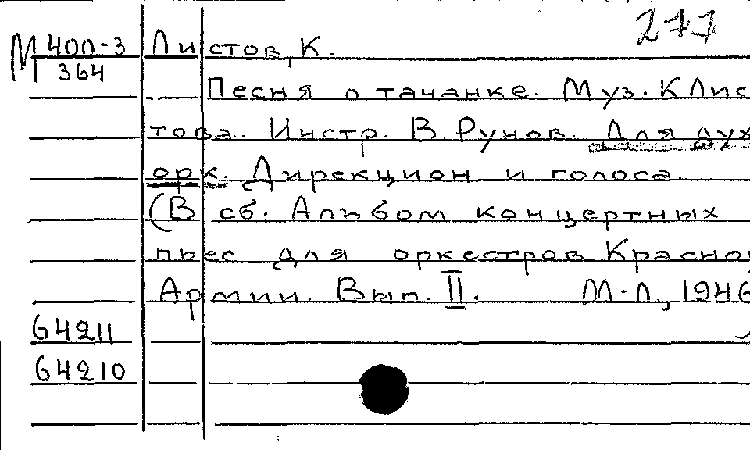 277
М 400-3 Листов, К.
364
Песня о тачанке. Муз. К Лис
това. Инстр. В Рунов. Для дух
орк. Дирекцион и голоса
(В сб. Альбом концертных
пьес для оркестров Красной
Армии. Вып. II. М-Л, 1946
64211
64210